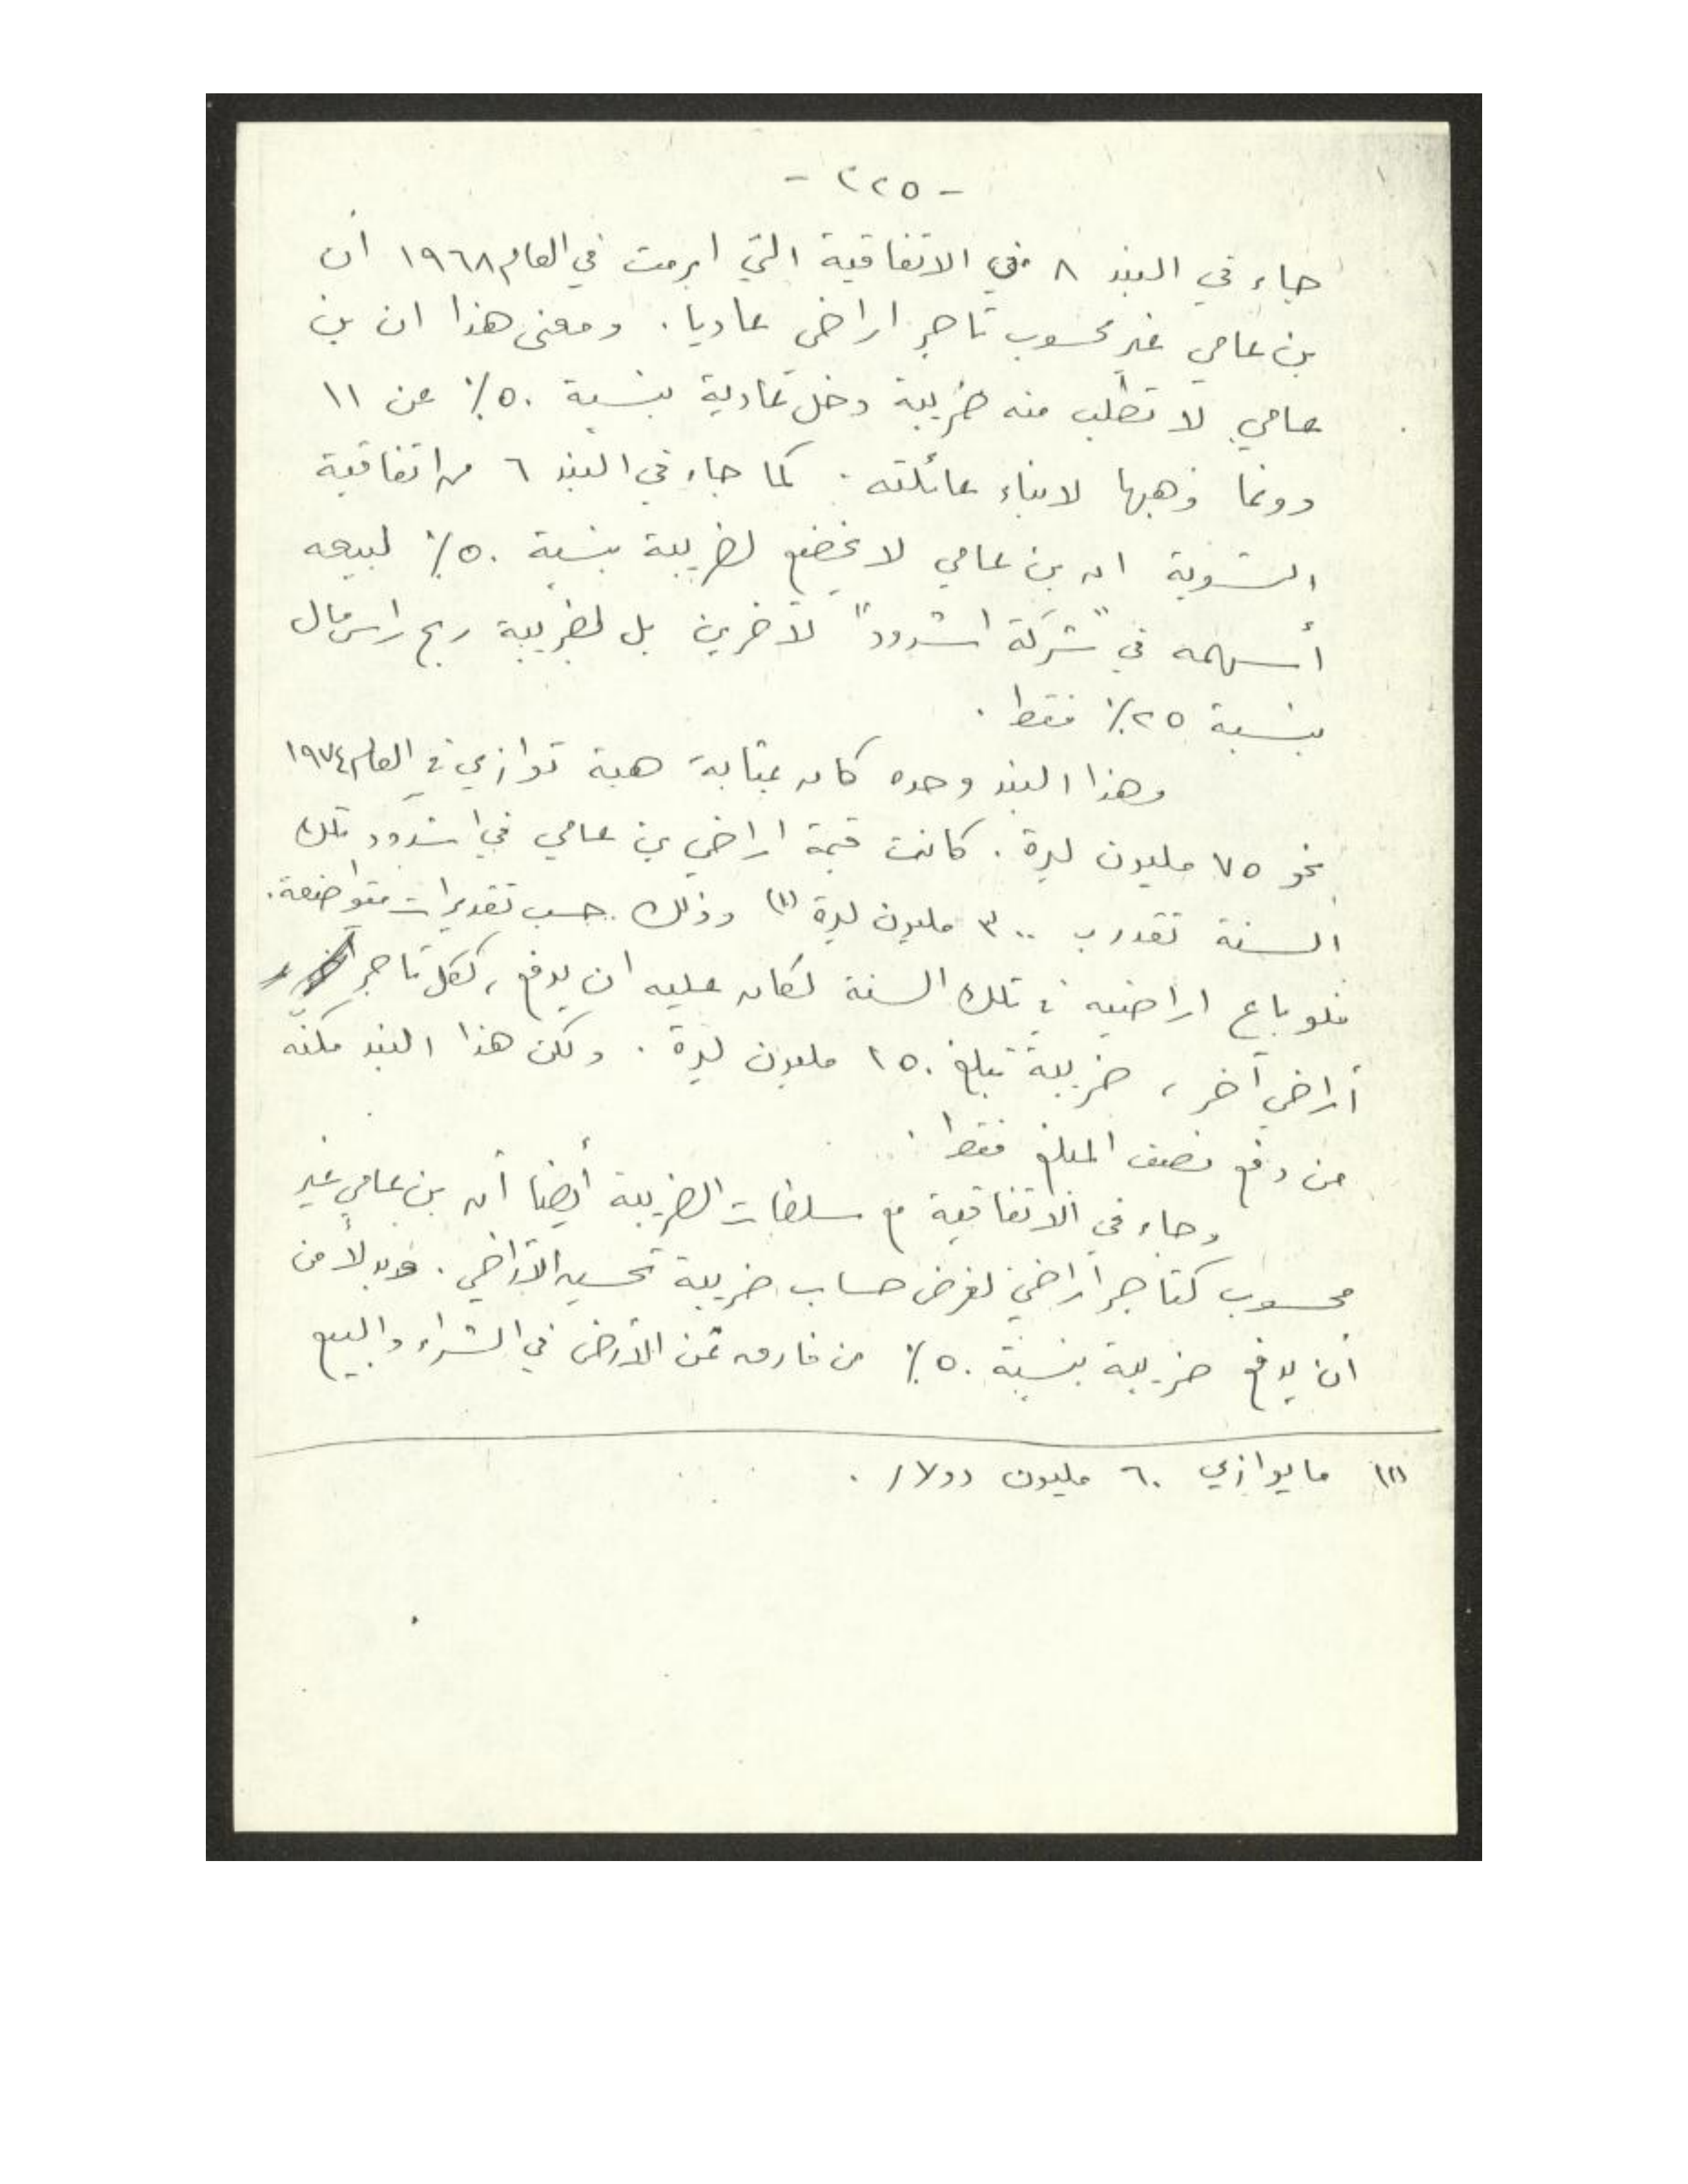 - ٢٢٥ -
جاء في البند ٨ في الاتفاقية التي ابرمت في العام ١٩٦٨ أن
بن عامي غير محسوب تاجر اراضي عاديا . ومعنى هذا ان بن
عامي لا تطلب منه ضريبة دخل عادية بنسبة ٥٠٪ عن ١١
دونما وهبها لابناء عائلته . كما جاء في البند ٦ من اتفاقية
التسوية ان بن عامي لا يخضع لضريبة بنسبة ٥٠٪ لبيعه
أسهمه في "شركة اشدود" لآخرين بل لضريبة ربح راس مال
بنسبة ٢٥٪ فقط .
وهذا البند وحده كان بمثابة هبة توازي في العام ١٩٧٤
نحو ٧٥ مليون ليرة . كانت قيمة اراضي بن عامي في اشدود تلك
السنة تقدر ب ٣٠٠ مليون ليرة (١) وذلك حسب تقديرات متواضعة .
فلو باع اراضيه في تلك السنة لكان عليه ان يدفع ، ككل تاجر
أراضي آخر ، ضريبة تبلغ ١٥٠ مليون ليرة . ولكن هذا البند مكنّه
من دفع نصف المبلغ فقط .
وجاء في الاتفاقية مع سلطات الضريبة أيضا أن بن عامي غير
محسوب كتاجر أراضي لغرض حساب ضريبة تحسين الأراضي . وبدلاً من
أن يدفع ضريبة بنسبة ٥٠٪ من فارق ثمن الأرض في الشراء والبيع
(١) ما يوازي ٦٠ مليون دولار .